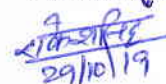 राकेश सिंह
29/10/19